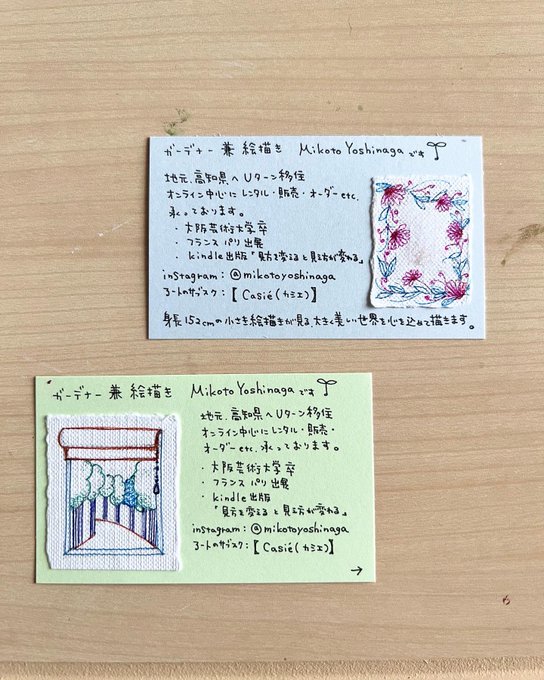 ガーデナー 兼 絵描き Mikoto Yoshinaga です
地元、高知県へUターン移住
オンライン中心にレンタル・販売・オーダーetc.
承っております。
・大阪芸術大学卒
・フランス パリ 出展
・kindle出版「見方を変えると見え方が変わる」
instagram：@mikotoyoshinaga
アートのサブスク：【Casié(カシエ)】
身長152cmの小さき絵描きが見る、大きく美しい世界を心を込めて描きます。
ガーデナー 兼 絵描き Mikoto Yoshinaga です
地元、高知県へUターン移住
オンライン中心にレンタル・販売・
オーダーetc. 承っております。
・大阪芸術大学卒
・フランス パリ 出展
・kindle出版
「見方を変えると見え方が変わる」
instagram：@mikotoyoshinaga
アートのサブスク：【Casié(カシエ)】
→